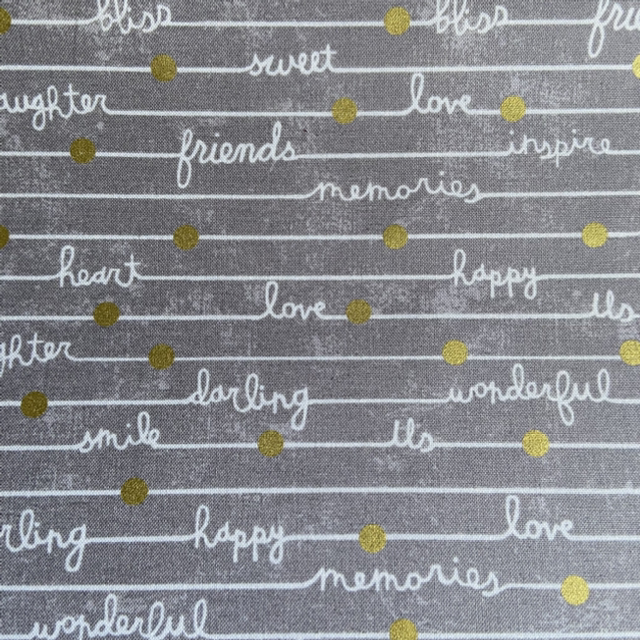 bliss bliss fri
sweet
aughter love
friends inspire
memories
heart happy
love Us
ghter
darling wonderful
smile Us
rling happy love
memories
wonderful